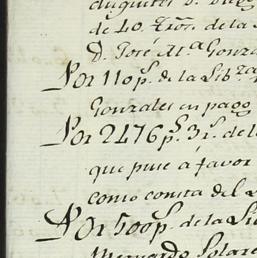 de 40. de la
D. José Ma Gonza
Por 110 ps. de la Lib.za
Gonzales en pago
Por 2476 ps. 3 rs. de l
que puse á favor
como consta del L
Por 500 ps. de la Li
Bernardo Solare